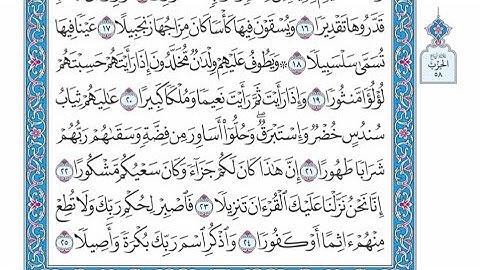 قَدَّرُوهَا تَقْدِيرًا ١٦ وَيُسْقَوْنَ فِيهَا كَأْسًا كَانَ مِزَاجُهَا زَنجَبِيلًا ١٧ عَيْنًا فِيهَا
تُسَمَّىٰ سَلْسَبِيلًا ١٨ ۞ وَيَطُوفُ عَلَيْهِمْ وِلْدَٰنٌ مُّخَلَّدُونَ إِذَا رَأَيْتَهُمْ حَسِبْتَهُمْ
لُؤْلُؤًا مَّنثُورًا ١٩ وَإِذَا رَأَيْتَ ثَمَّ رَأَيْتَ نَعِيمًا وَمُلْكًا كَبِيرًا ٢٠ عَٰلِيَهُمْ ثِيَابُ
سُندُسٍ خُضْرٌ وَإِسْتَبْرَقٌ ۖ وَحُلُّوٓا۟ أَسَاوِرَ مِن فِضَّةٍ وَسَقَىٰهُمْ رَبُّهُمْ
شَرَابًا طَهُورًا ٢١ إِنَّ هَٰذَا كَانَ لَكُمْ جَزَآءً وَكَانَ سَعْيُكُم مَّشْكُورًا ٢٢
إِنَّا نَحْنُ نَزَّلْنَا عَلَيْكَ ٱلْقُرْءَانَ تَنزِيلًا ٢٣ فَٱصْبِرْ لِحُكْمِ رَبِّكَ وَلَا تُطِعْ
مِنْهُمْ ءَاثِمًا أَوْ كَفُورًا ٢٤ وَٱذْكُرِ ٱسْمَ رَبِّكَ بُكْرَةً وَأَصِيلًا ٢٥
ثلاثة أرباع
الحزب
٥٨